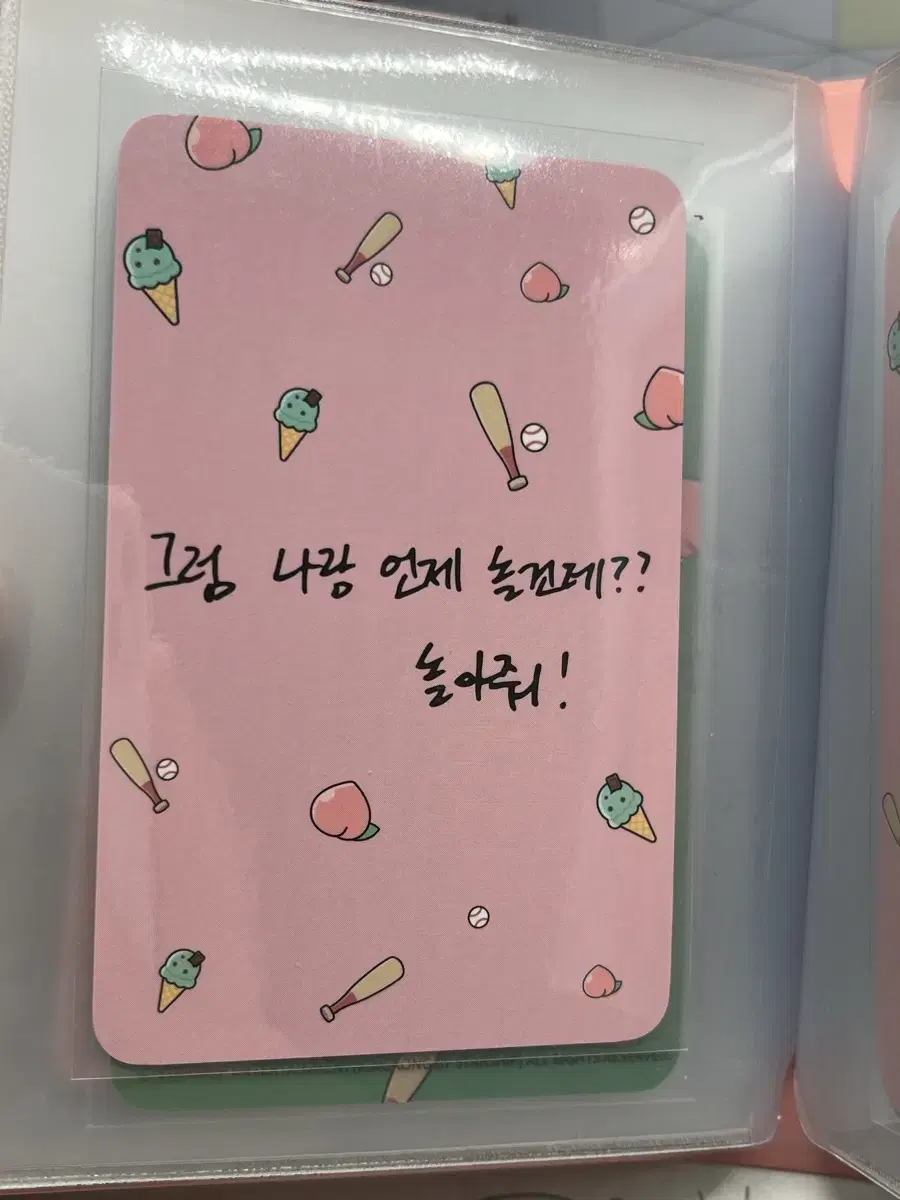 그럼 나랑 언제 놀건데??
놀아줘!